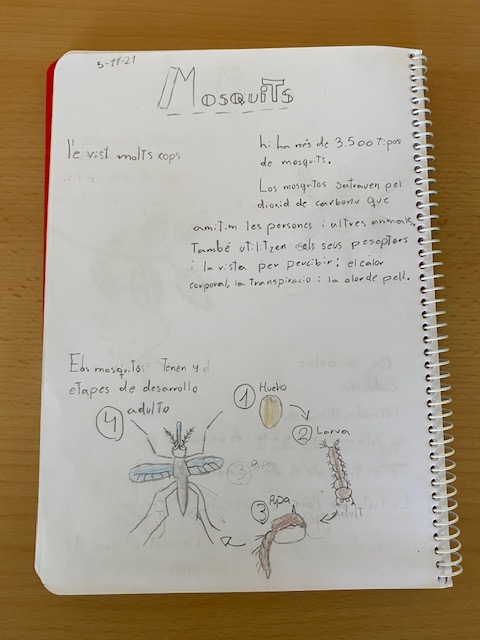 5-11-21
MOSQUITS
l'e vist molts cops
hi ha nés de 3.500 tipos
de mosquits.
Los mosquitos satrauen pel
dioxid de carbonu que
amitim les persones i altres animals.
També utilitzen els seus peseptors
i la vista per percibir: el calor
corporal, la transpiracio i la olor de pell.
Els mosquitos Tenen 4 d
etapes de desarrollo
4 adulto
1 Huevo
2 Larva
3 Pupa
3 Pupa
adult